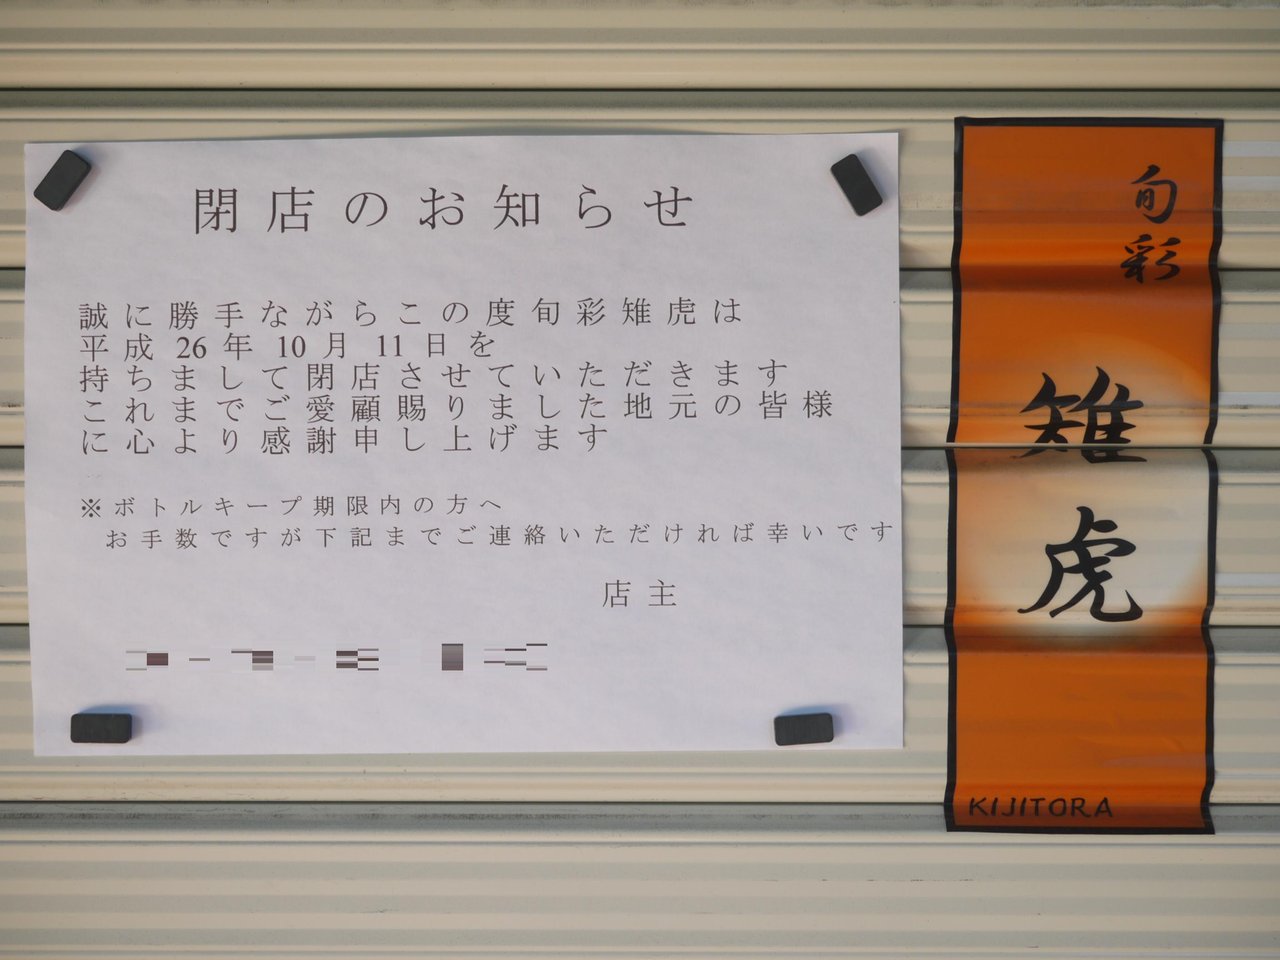 閉店のお知らせ
誠に勝手ながらこの度旬彩雉虎は
平成26年10月11日を
持ちまして閉店させていただきます
これまでご愛顧賜りました地元の皆様
に心より感謝申し上げます
※ボトルキープ期限内の方へ
お手数ですが下記までご連絡いただければ幸いです
店主
旬彩
雉虎
KIJITORA